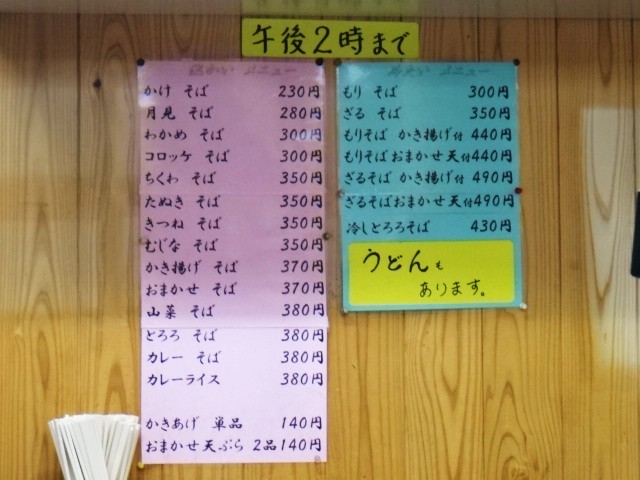 午後2時まで
温かい メニュー
かけ そば 230円
月見 そば 280円
わかめ そば 300円
コロッケ そば 300円
ちくわ そば 350円
たぬき そば 350円
きつね そば 350円
むじな そば 350円
かき揚げ そば 370円
おまかせ そば 370円
山菜 そば 380円
とろろ そば 380円
カレー そば 380円
カレーライス 380円
かきあげ 単品 140円
おまかせ天ぷら 2品140円
冷たい メニュー
もり そば 300円
ざる そば 350円
もりそば かき揚げ付 440円
もりそばおまかせ天付440円
ざるそば かき揚げ付 490円
ざるそばおまかせ天付490円
冷しとろろそば 430円
うどんも
あります。